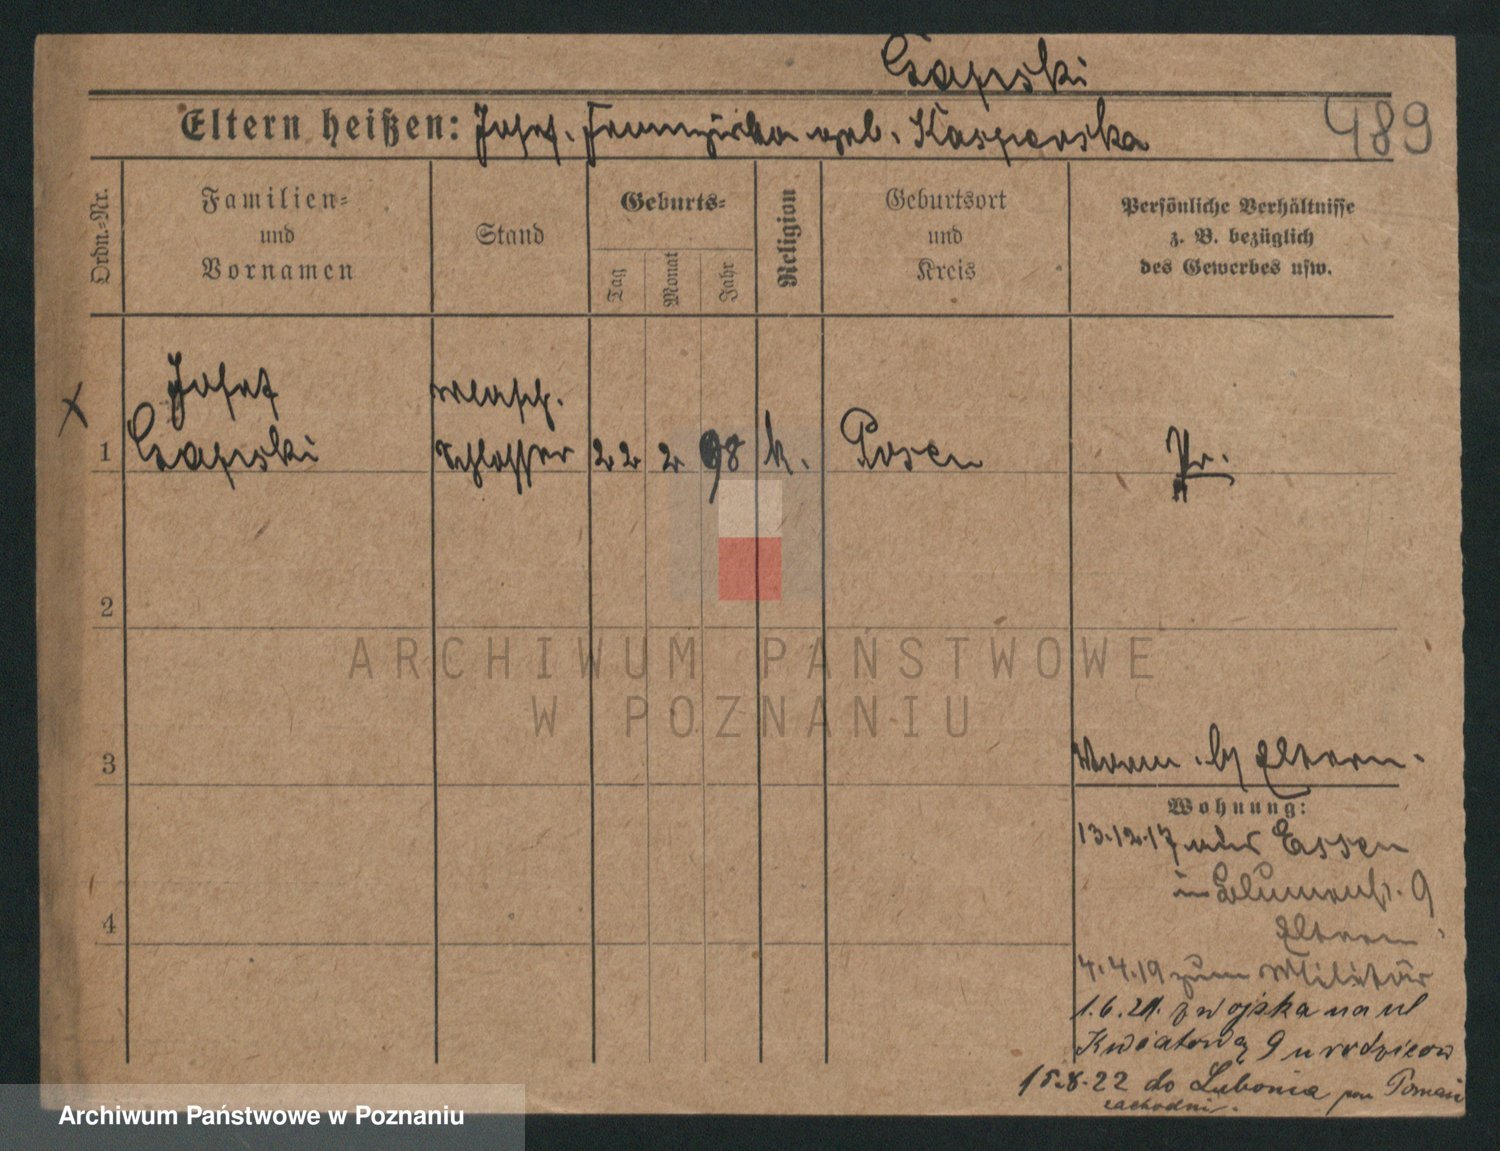 Czapski
Eltern heißen: Josef. Franziska geb. Kasperska
489
Ordn.-Nr.
Familien-
und
Vornamen
Stand
Geburts-
Tag
Monat
Jahr
Religion
Geburtsort
und
Kreis
Persönliche Verhältnisse
z. B. bezüglich
des Gewerbes usw.
x
Josef
Masch.
1
Czapski
Schlosser
22
2
98
k.
Posen
Pr.
2
ARCHIWUM PAŃSTWOWE
W POZNANIU
3
Eltern.
Wohnung:
13.12.17 aus Essen
in Blumenstr. 9
4
Eltern
4.4.19 zum Militär
1.6.21. z wojska na ul
Kwiatową 9 u rodziców
15.8.22 do Lubonia pow Poznań
zachodni.
Archiwum Państwowe w Poznaniu